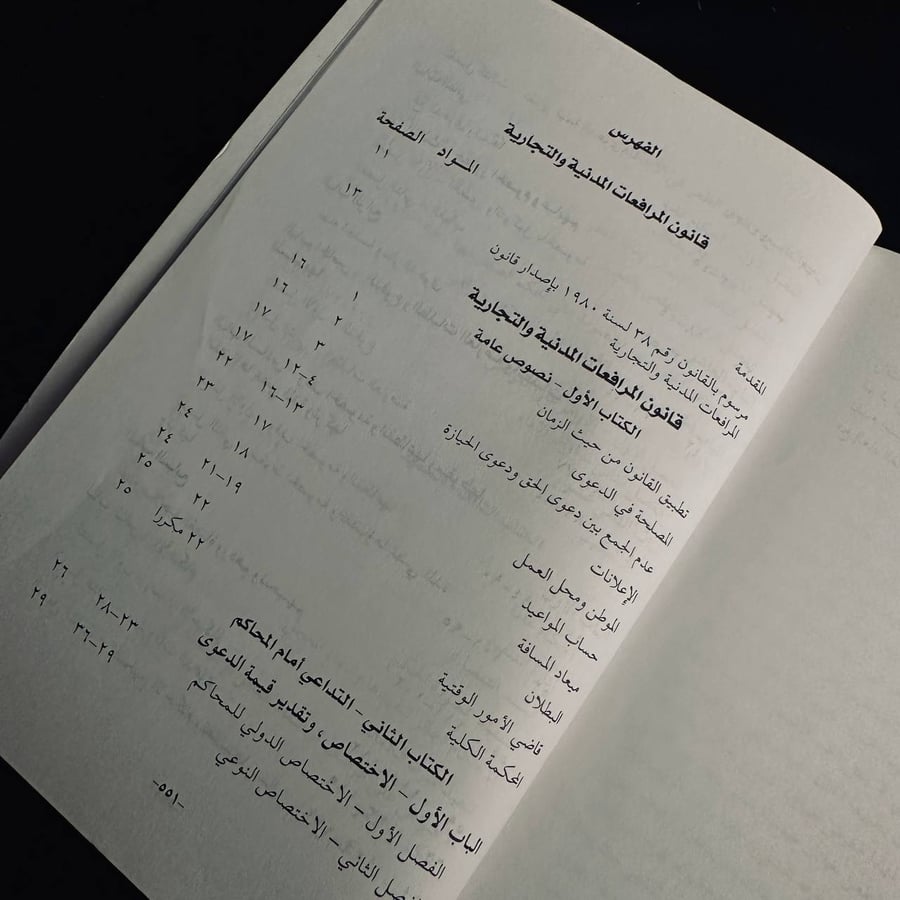 الفهرس
قانون المرافعات المدنية والتجارية
المـواد الصفحة
المقدمة ١١
مرسوم بالقانون رقم ٣٨ لسنة ١٩٨٠ بإصدار قانون
المرافعات المدنية والتجارية ١٣
قانون المرافعات المدنية والتجارية
الكتاب الأول – نصوص عامة
تطبيق القانون من حيث الزمان ١ ١٦
المصلحة في الدعوى ٢ ١٦
عدم الجمع بين دعوى الحق ودعوى الحيازة ٣ ١٧
الإعلانات ٤–١٢ ١٧
الموطن ومحل العمل ١٣–١٦ ٢٢
حساب المواعيد ١٧ ٢٣
ميعاد المسافة ١٨ ٢٤
البطلان ١٩–٢١ ٢٤
قاضي الأمور الوقتية ٢٢ ٢٥
المحكمة الكلية ٢٢ مكررا ٢٥
الكتاب الثاني – التداعي أمام المحاكم
الباب الأول – الاختصاص، وتقدير قيمة الدعوى
الفصل الأول – الاختصاص الدولي للمحاكم ٢٣–٢٨ ٢٦
الفصل الثاني – الاختصاص النوعي ٢٩–٣٦ ٢٩
-٥٥١-